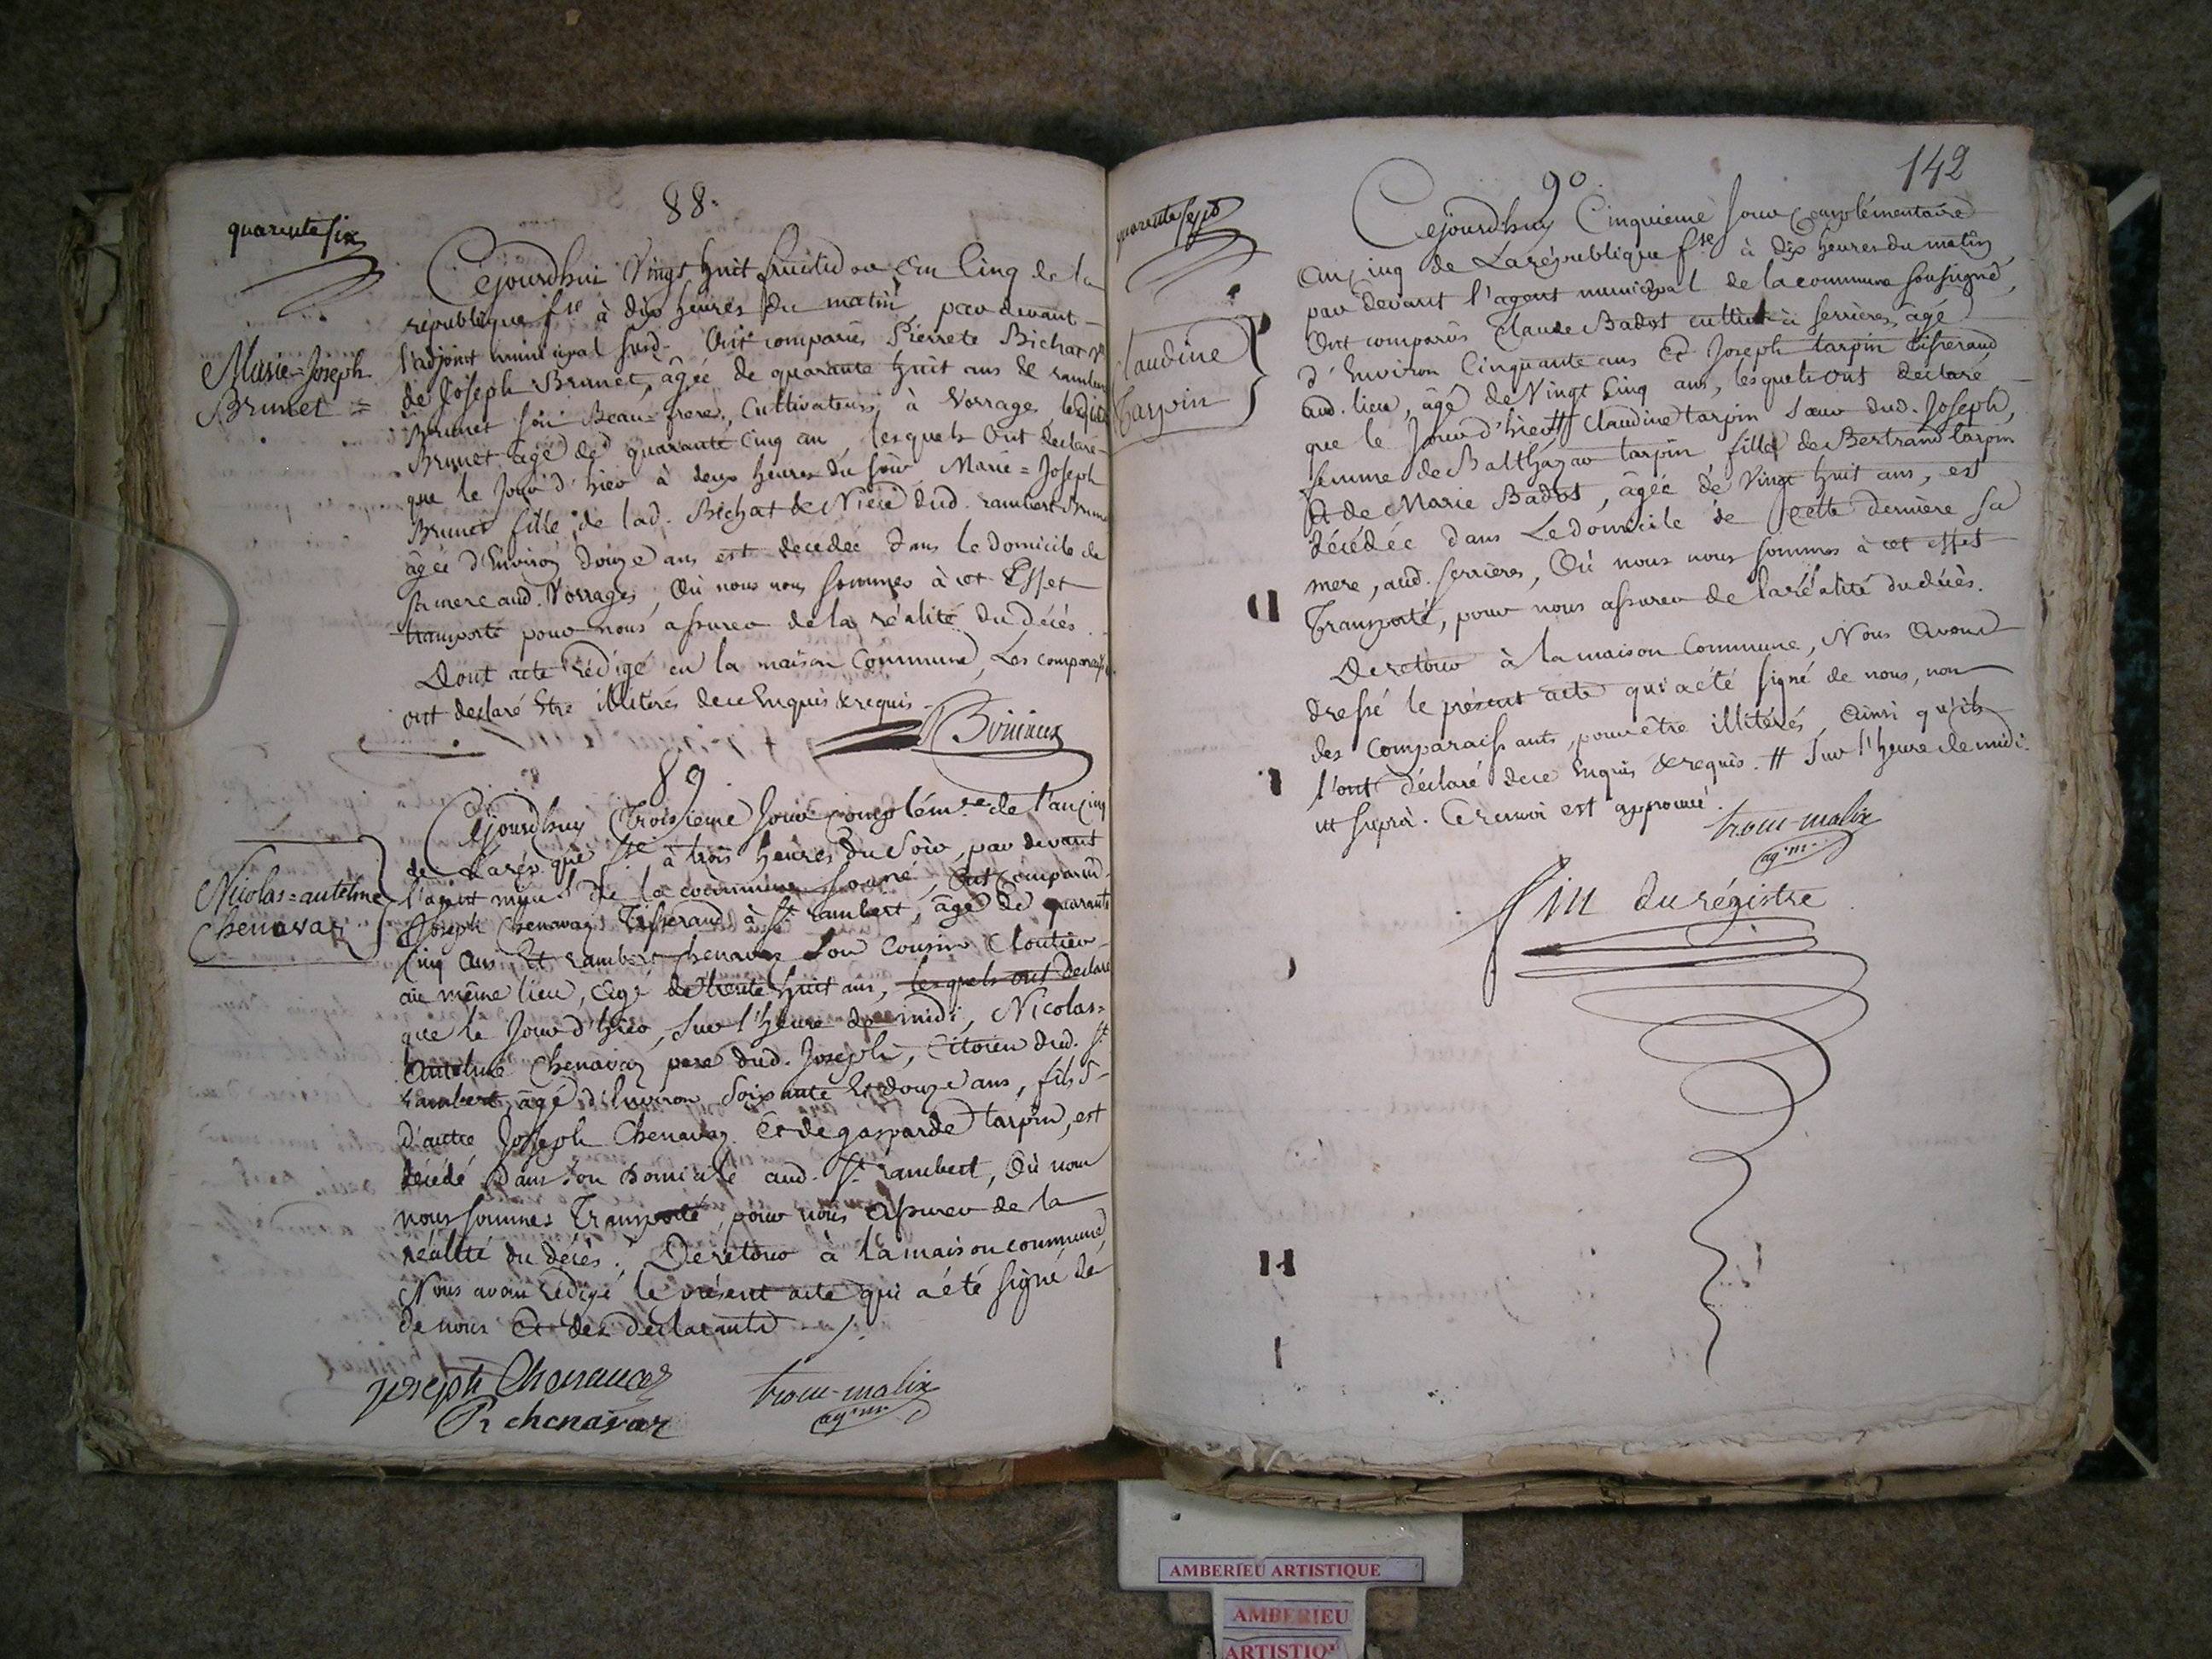 88.
quarente six
Cejourdhui Vingt huit fructidor an Cinq de la
république fse à dix heures du matin, par devant
l'adjoint municipal susd. Ont comparus Pierrete Bichat ve
Marie=Joseph
Brunet =
de Joseph Brunet, âgée de quarante huit ans & rambert
Brunet son Beau=frere, Cultivateurs à Vorrages, ledit
Brunet agé de quarante Cinq an lesquels Ont declaré
que le Jour d'hier à deux heures du soir Marie=Joseph
Brunet fille de lad. Bichat & Niece dud. rambert Brunet
âgée d'Environ douze ans est decedée dans le domicile de
sa mere aud. Vorrages, Où nous nous sommes à cet Effet
transporté pour nous assurer de la réalité du décès.
Dont acte rédigé en la maison Commune, Les comparants
ont declaré Etre illitérés de ce Enquis & requis.
89.
Cejourdhuy Troisieme Jour complémre de l'an cinq
de Larép.que fse à trois heures du Soir, par devant
l'agent mun.l de la commune sousné, Ont comparus
Nicolas=autelme
Chenavaz
Joseph Chenavaz Tisserand à St rambert, âgé de quarante
Cinq ans Et rambert Chenavaz Son Cousin Cloutier
au même lieu, âgé de trente huit ans, lesquels ont declaré
que le Jour d'hier, sur l'heure de midi, Nicolas=
Autelme Chenavaz pere dud. Joseph, Citoien dud. St
rambert, âgé d'Environ Soixante Et douze ans, fils
d'autre Joseph Chenavaz Et de gasparde tarpin, est
décédé dans son domicile aud. St rambert, Où nous
nous sommes Transporté, pour nous assurer de la
réalité du décès. De retour à la maison commune,
Nous avons rédigé le présent acte qui a été signé de
de nous Et des déclarants
joseph Chenavaz
R chenavaz
trocu-malix
ag.m.
142
90.
quarente sept
Cejourdhuy Cinquieme Jour Complémentaire
an Cinq de Larépublique fse à dix heures du matin,
par devant l'agent municipal de la commune sousigné,
Ont comparûs Claude Badot cultivr à serrieres, âgé
Claudine
tarpin
d'Environ Cinquante ans Et Joseph tarpin tisserand
aud. lieu, âgé de Vingt Cinq ans, lesquels ont déclaré
que le Jour d'hier # Claudine tarpin sœur dud. Joseph,
femme de Balthazar tarpin fille de Bertrand tarpin
Et de Marie Badot, âgée de Vingt huit ans, est
décédée dans Le domicile de cette derniere sa
mere, aud. serrières, Où nous nous sommes à cet effet
Transporté, pour nous assurer de la réalité du décès.
De retour à la maison Commune, Nous avons
dressé le présent acte qui a été signé de nous, non
des Comparaissants, pour être illitérés, ainsi qu'ils
l'ont déclaré de ce Enquis & requis. # sur l'heure de midi.
ut suprà. Ce renvoi est approuvé.
trocu-malix
ag.m.
fin du régistre
AMBERIEU ARTISTIQUE
AMBERIEU
ARTISTIQ